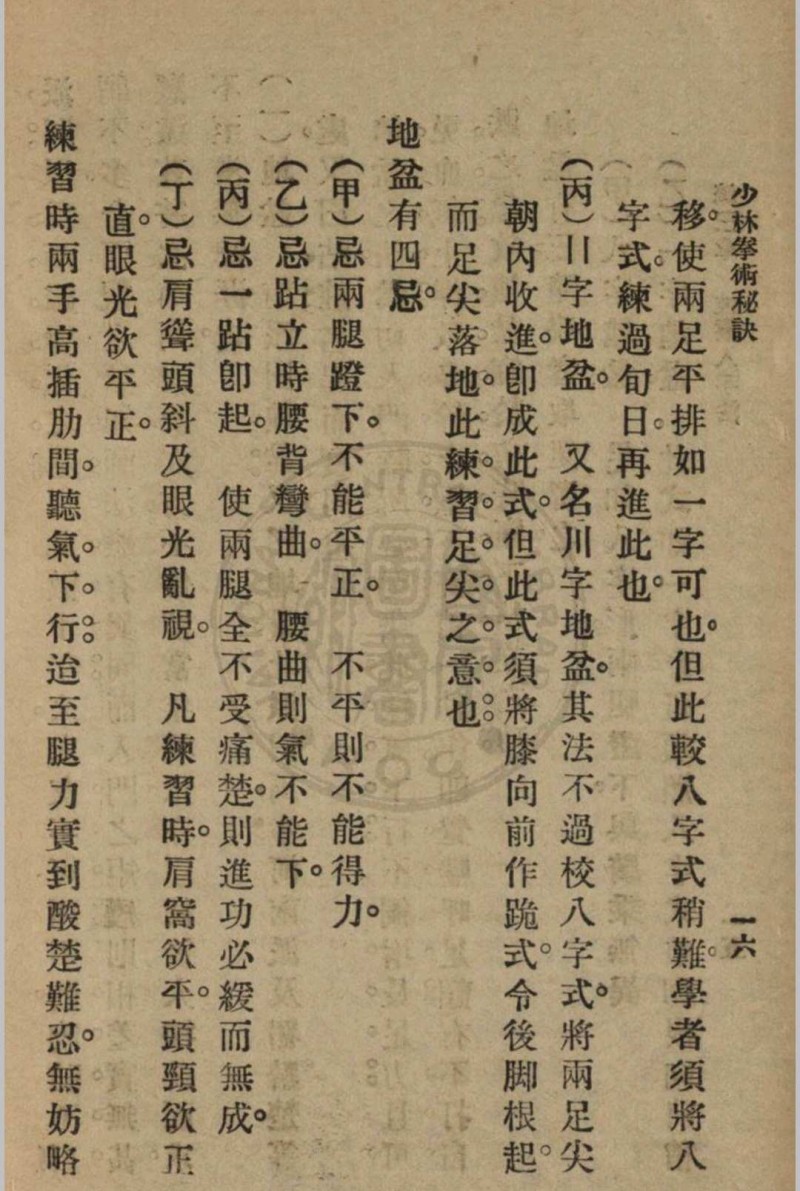 少林拳術秘訣
一六
移。使兩足平排如一字可也。但此較八字式稍難。學者須將八
字式。練過旬日。再進此也。
（丙）〢字地盆。　又名川字地盆。其法不過校八字式。將兩足尖
朝內收進。卽成此式。但此式須將膝向前作跪式。令後脚根起。
而足尖落地。此練。習。足。尖。之。意。也。
地盆有四忌。
（甲）忌兩腿蹬下。不能平正。　不平則不能得力。
（乙）忌跕立時腰背彎曲。　腰曲則氣不能下。
（丙）忌一跕卽起。　使兩腿全不受痛楚。則進功必緩而無成。
（丁）忌肩聳頭斜及眼光亂視。　凡練習時。肩窩欲平。頭頸欲正
直。眼光欲平正。
練習時兩手高插肋間。聽氣。下。行。迨至腿力實到酸楚難忍。無妨略